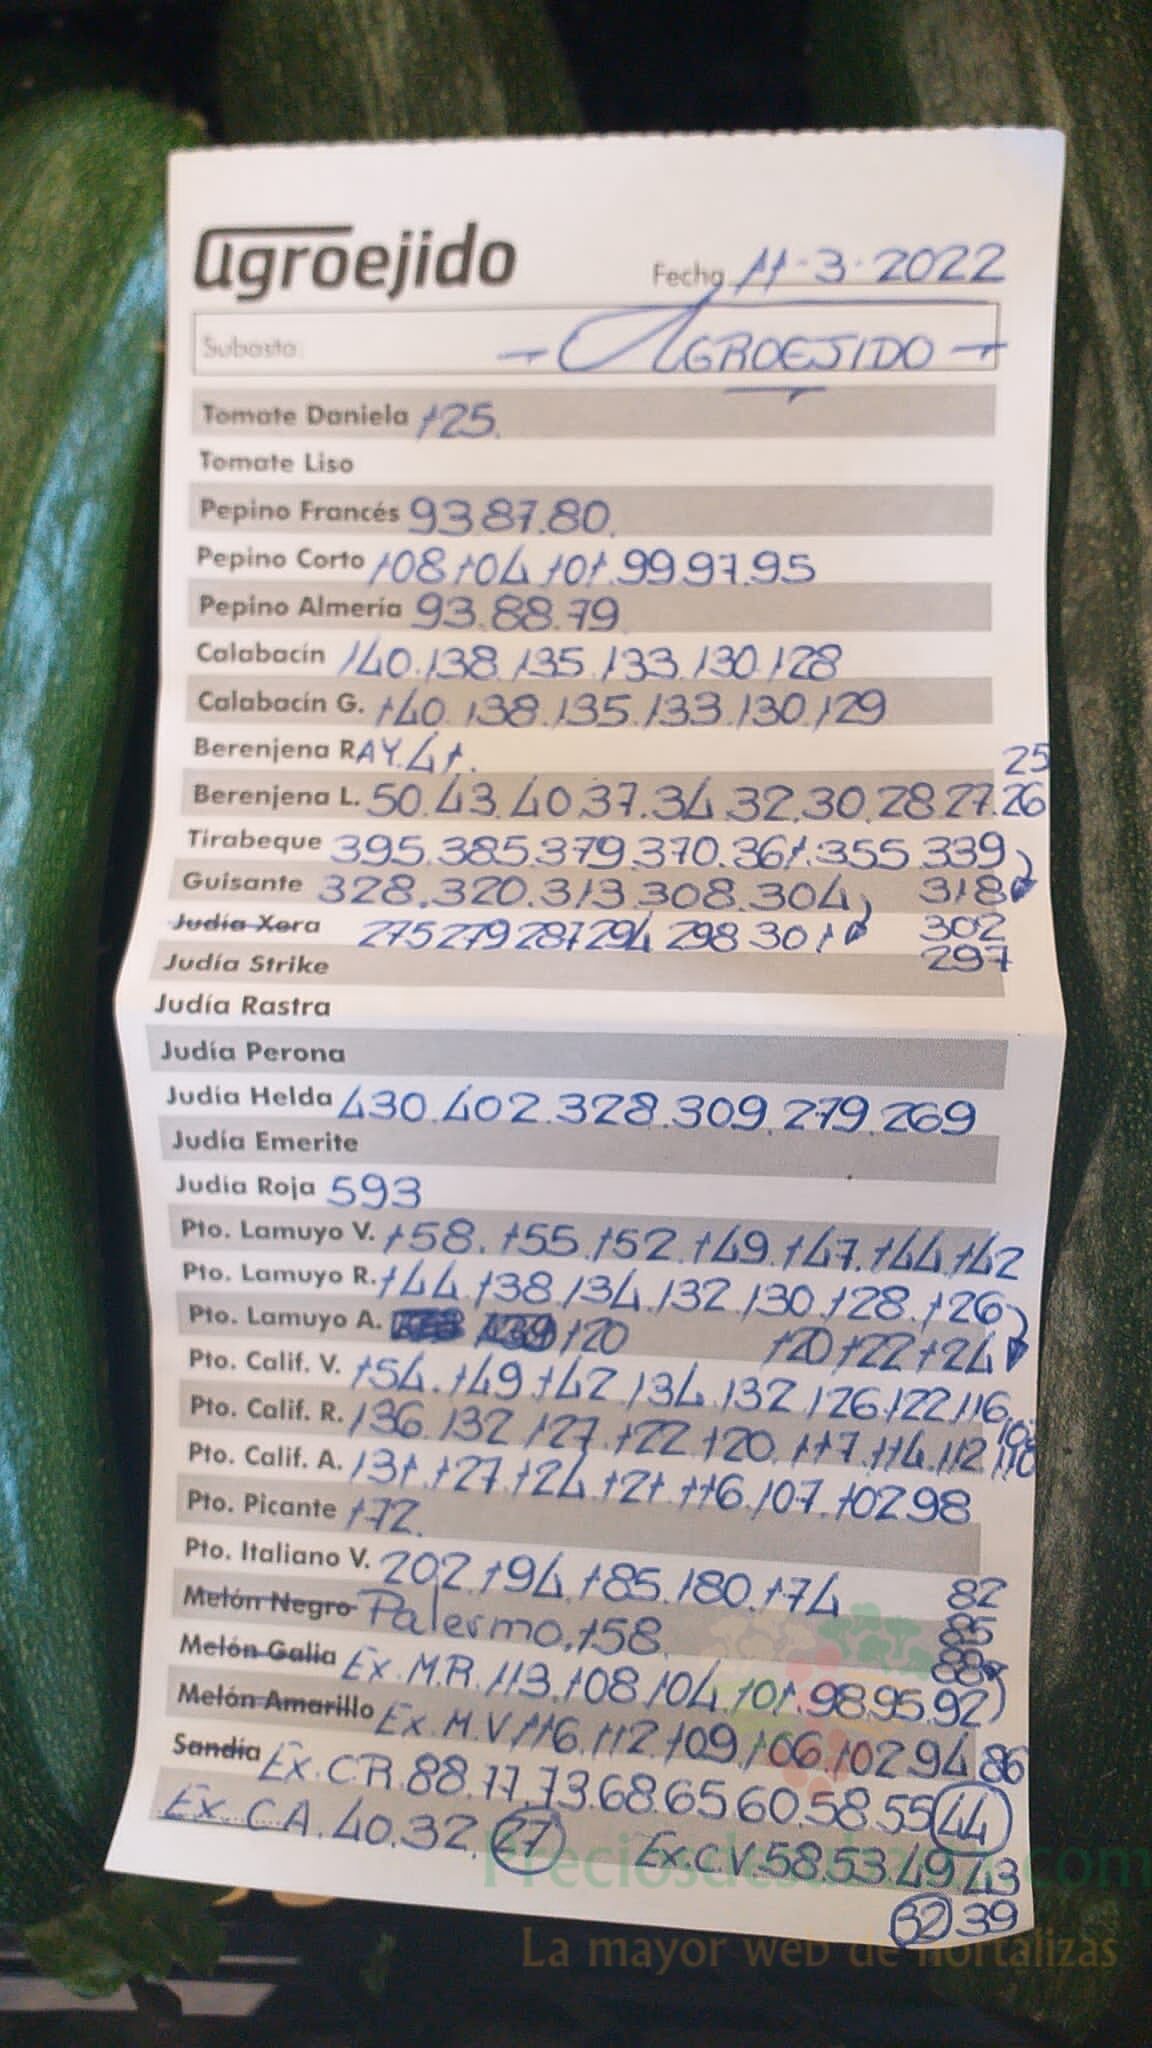 agroejido
Fecha 11-3-2022
Subasta: AGROEJIDO
Tomate Daniela 125.
Tomate Liso
Pepino Francés 93.87.80.
Pepino Corto 108.104.101.99.97.95
Pepino Almería 93.88.79
Calabacín 140.138.135.133.130.128
Calabacín G. 140.138.135.133.130.129
Berenjena RAY.41. 25
Berenjena L. 50.43.40.37.34.32.30.28.27.26
Tirabeque 395.385.379.370.361.355.339
Guisante 328.320.313.308.304 318
Judía Xera 275 279 287 294 298 301 302
Judía Strike 297
Judía Rastra
Judía Perona
Judía Helda 430.402.328.309.279.269
Judía Emerite
Judía Roja 593
Pto. Lamuyo V. 158.155.152.149.147.144.142
Pto. Lamuyo R. 144.138.134.132.130.128.126
Pto. Lamuyo A. 120 120 122 124
Pto. Calif. V. 154.149.142.134.132.126.122.116
Pto. Calif. R. 136.132.127.122.120.117.114.112 110
Pto. Calif. A. 131.127.124.121.116.107.102 98
Pto. Picante 172.
Pto. Italiano V. 202.194.185.180.174 82
Melón Negro Palermo.158. 85
Melón Galia Ex.M.R.113.108.104.101.98.95.92 88
Melón Amarillo Ex.M.V 116.112.109.106.102 94 86
Sandía Ex.C.R.88.77.73.68.65.60.58.55 44
Ex.C.A.40.32.27 Ex.C.V.58.53.49.43
32 39
Preciosdesubasta.com
La mayor web de hortalizas